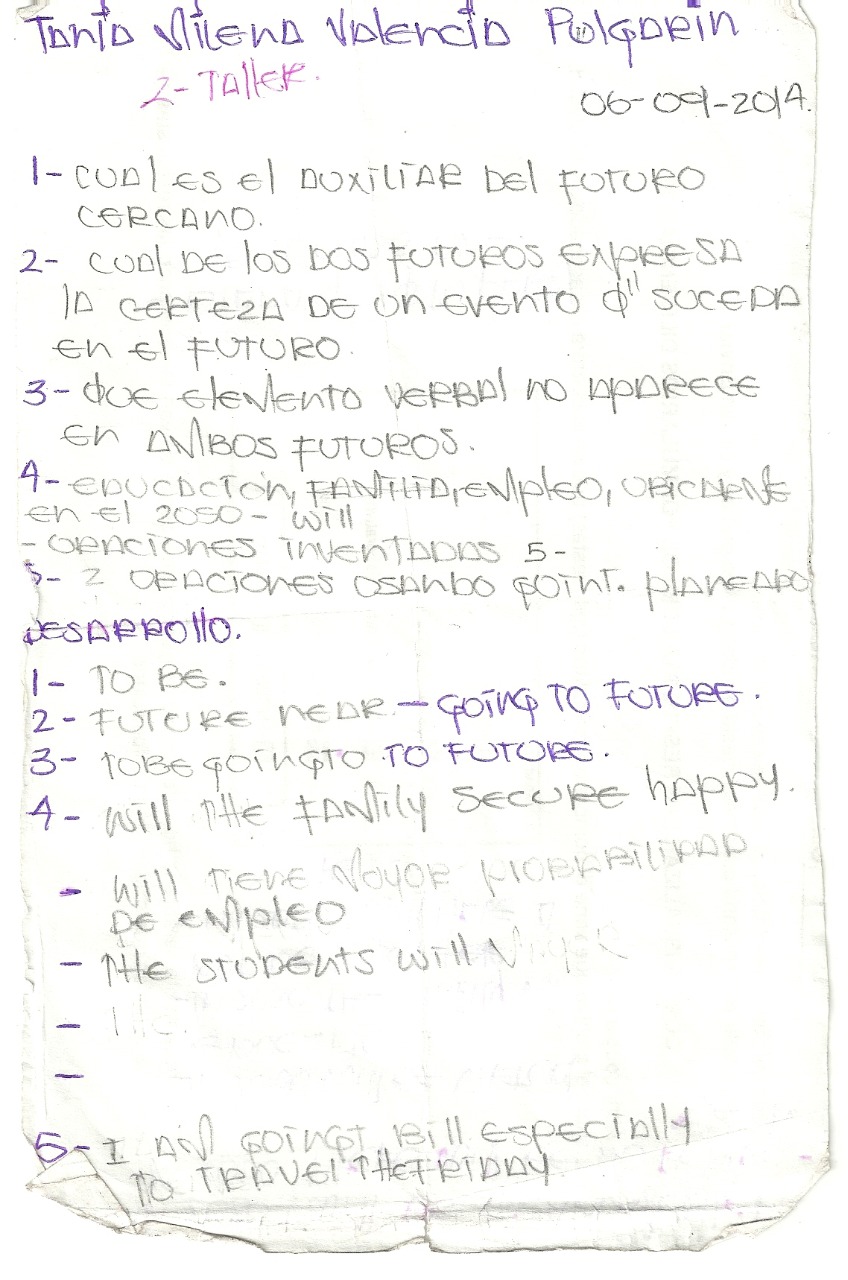 Tania Milena Valencia Pulgarin
2- Taller.
06-09-2014.
1- cual es el auxiliar del futuro
cercano.
2- cual de los dos futuros expresa
la certeza de un evento q" suceda
en el futuro.
3- que elemento verbal no aparece
en ambos futuros.
4- educación, familia, empleo, ubicarme
en el 2050 - will
- oraciones inventadas 5-
5- 2 oraciones usando goint. planeado
desarrollo.
1- to be.
2- future near - going to future.
3- tobe goingto to future.
4- will the family secure happy.
- will tiene mayor
de empleo
- the students will
-
-
5- I am goingt Bill especially
to travel the friday